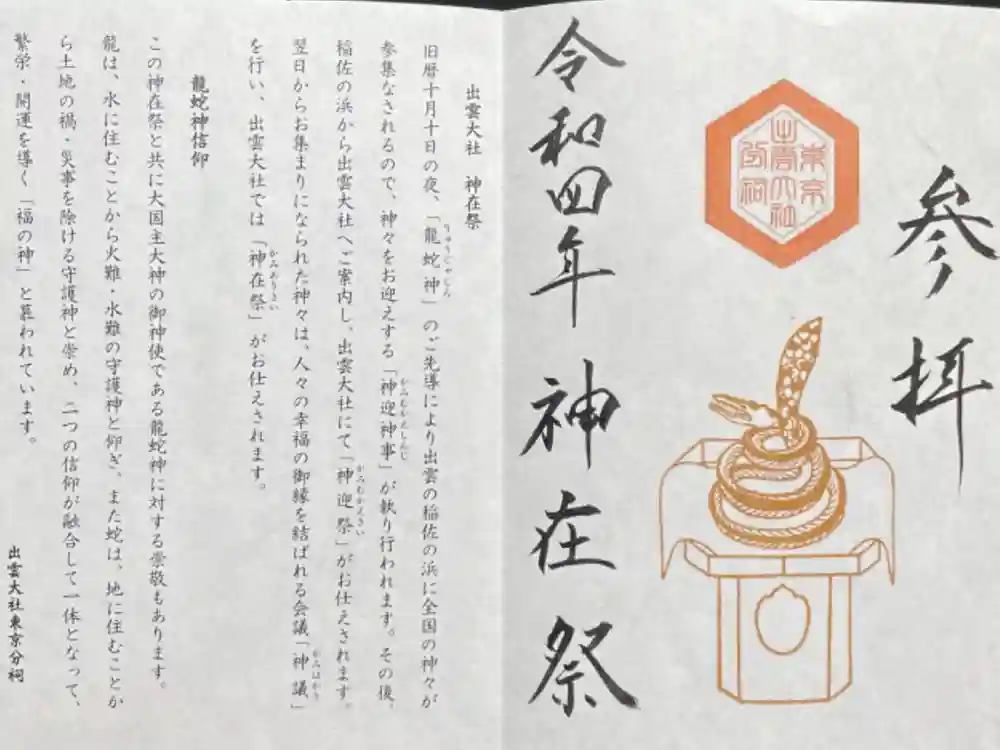 参拝
東京
出雲大社
分祠
令和四年 神在祭
出雲大社 神在祭
旧暦十月十日の夜、「龍蛇神」のご先導により出雲の稲佐の浜に全国の神々が
りゅうじゃじん
参集なされるので、神々をお迎えする「神迎神事」が執り行われます。その後、
かみむかえしんじ
稲佐の浜から出雲大社へご案内し、出雲大社にて「神迎祭」がお仕えされます。
かみむかえさい
翌日からお集まりになられた神々は、人々の幸福の御縁を結ばれる会議「神議」
かみはかり
を行い、出雲大社では「神在祭」がお仕えされます。
かみありさい
龍蛇神信仰
この神在祭と共に大国主大神の御神使である龍蛇神に対する崇敬もあります。
龍は、水に住むことから火難・水難の守護神と仰ぎ、また蛇は、地に住むことか
ら土地の禍・災事を除ける守護神と崇め、二つの信仰が融合して一体となって、
繁栄・開運を導く「福の神」と慕われています。
出雲大社東京分祠